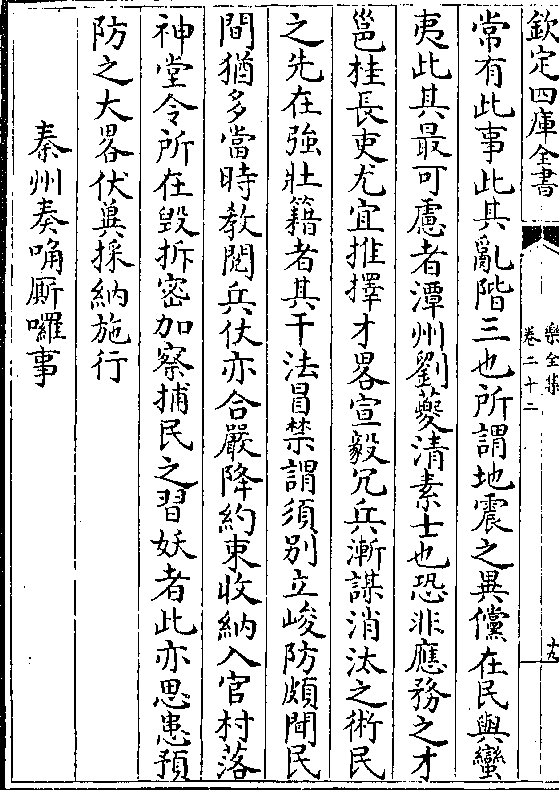 欽定四庫全書
樂全集
卷二十二
十九
常有此事此其亂階三也所謂地震之異儻在民與蠻
夷此其最可慮者潭州劉夔清素士也恐非應務之才
邕桂長吏尤宜推擇才畧宣毅冗兵漸謀消汰之術民
之先在強壯籍者其干法冒禁謂須别立峻防頗聞民
間猶多當時教閲兵仗亦合嚴降約束收納入官村落
神堂令所在毀拆密加察捕民之習妖者此亦思患預
防之大畧伏兾採納施行
秦州奏唃厮囉事